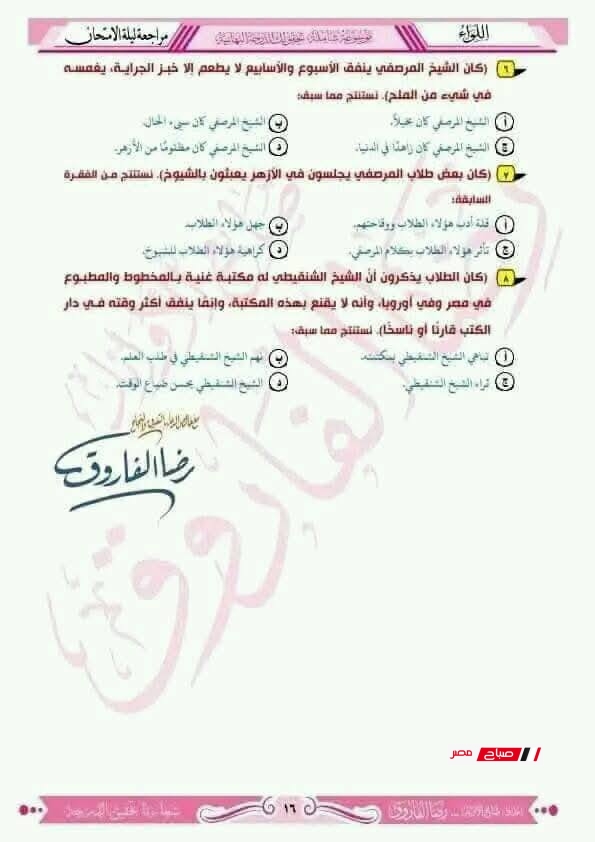 اللواء
موسوعة شاملة.. تحقق لك الدرجة النهائية
مراجعة ليلة الامتحان
٦ (كان الشيخ المرصفي ينفق الأسبوع والأسابيع لا يطعم إلا خبز الجراية، يغمسه
في شيء من الملح). نستنتج مما سبق:
أ الشيخ المرصفي كان بخيلاً. ب الشيخ المرصفي كان سيىء الحال.
ج الشيخ المرصفي كان زاهدًا في الدنيا. د الشيخ المرصفي كان مظلومًا من الأزهر.
٧ (كان بعض طلاب المرصفي يجلسون في الأزهر يعبثون بالشيوخ). نستنتج من الفقرة
السابقة:
أ قلة أدب هؤلاء الطلاب ووقاحتهم. ب جهل هؤلاء الطلاب.
ج تأثر هؤلاء الطلاب بكلام المرصفي. د كراهية هؤلاء الطلاب للشيوخ.
٨ (كان الطلاب يذكرون أنَّ الشيخ الشنقيطي له مكتبة غنية بالمخطوط والمطبوع
في مصر وفي أوروبا، وأنه لا يقنع بهذه المكتبة، وإنمَّا ينفق أكثر وقته في دار
الكتب قارئًا أو ناسخًا). نستنتج مما سبق:
أ تباهي الشيخ الشنقيطي بمكتبته. ب نهم الشيخ الشنقيطي في طلب العلم.
ج ثراء الشيخ الشنقيطي. د الشيخ الشنقيطي يحسن ضياع الوقت.
رضا الفاروق
صباح مصر
رضا الفاروق
١٦